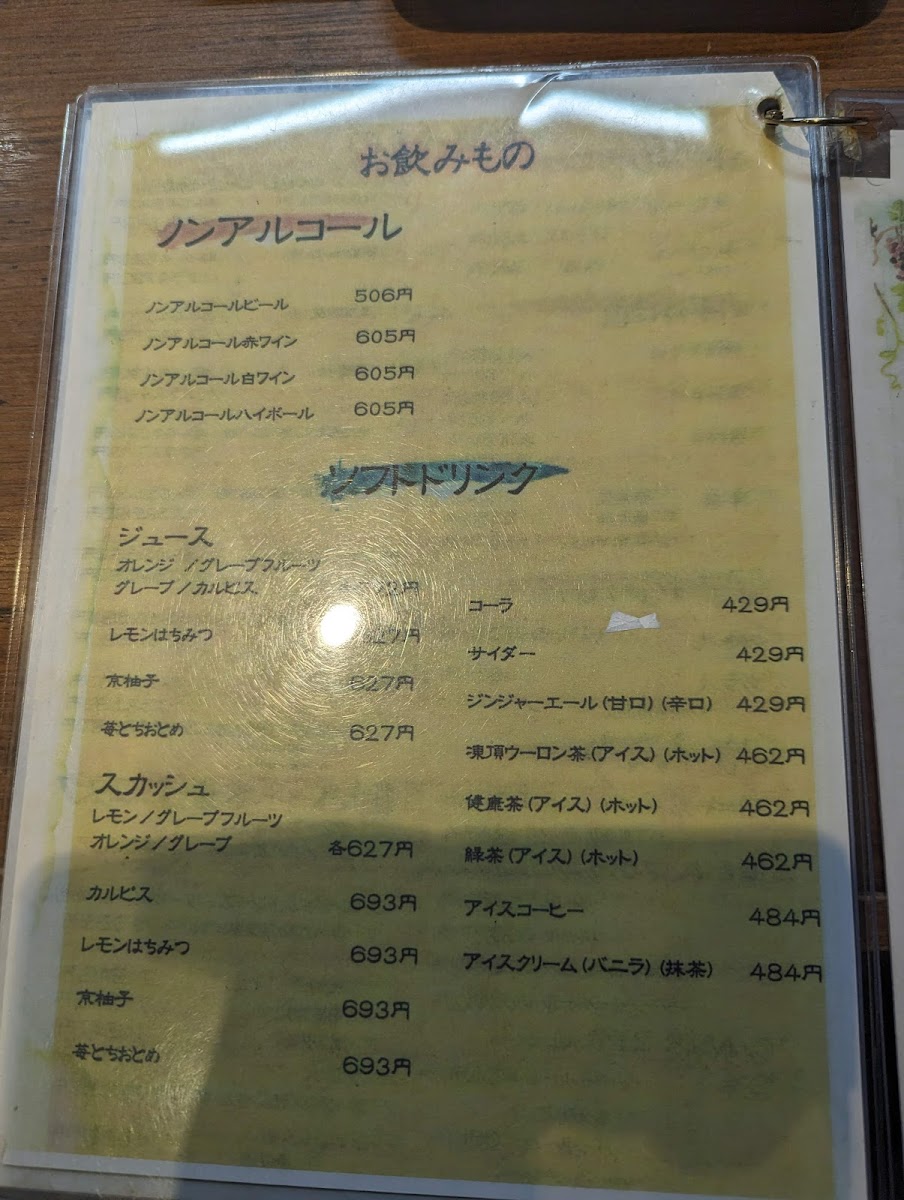 お飲みもの
ノンアルコール
ノンアルコールビール 506円
ノンアルコール赤ワイン 605円
ノンアルコール白ワイン 605円
ノンアルコールハイボール 605円
ソフトドリンク
ジュース
オレンジ／グレープフルーツ
グレープ／カルピス 円
レモンはちみつ 627円
京柚子 627円
苺とちおとめ 627円
スカッシュ
レモン／グレープフルーツ
オレンジ／グレープ 各627円
カルピス 693円
レモンはちみつ 693円
京柚子 693円
苺とちおとめ 693円
コーラ 429円
サイダー 429円
ジンジャーエール(甘口)(辛口) 429円
凍頂ウーロン茶(アイス)(ホット) 462円
健康茶(アイス)(ホット) 462円
緑茶(アイス)(ホット) 462円
アイスコーヒー 484円
アイスクリーム(バニラ)(抹茶) 484円